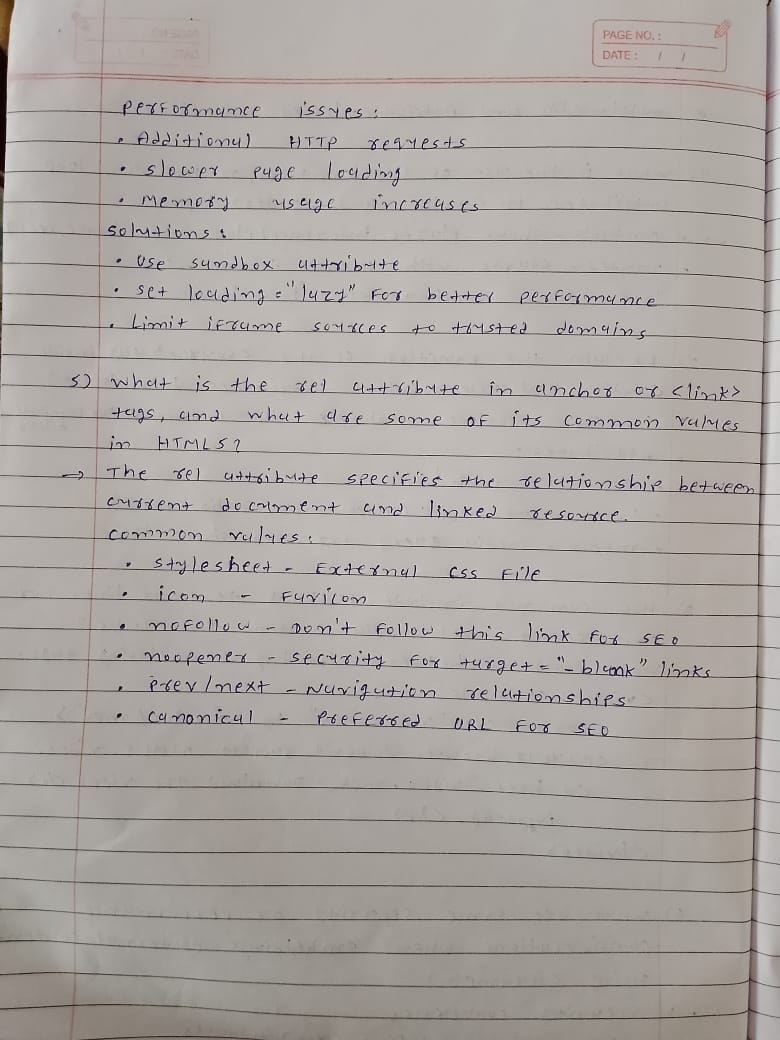 PAGE NO. :
DATE : / /
Performance issues :
• Additional HTTP requests
• slower page loading
• Memory usage increases
solutions :
• Use sandbox attribute
• set loading = "lazy" For better performance
• Limit iframe sources to trusted domains
5) What is the rel attribute in anchor or <link>
tags, and what are some of its common values
in HTML5?
→ The rel attribute specifies the relationship between
current document and linked resource.
common values :
• stylesheet - External CSS File
• icon - Favicon
• nofollow - Don't Follow this link For SEO
• noopener - security For target = "_blank" links
• Prev/next - Navigation relationships
• canonical - Preferred URL For SEO